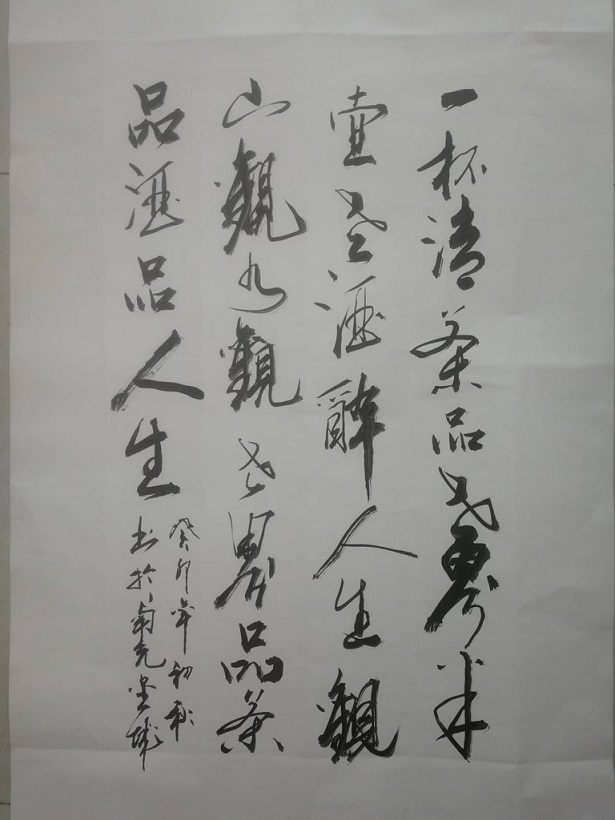 一杯清茶品世界半
壶老酒醉人生觀
山觀水觀世界品茶
品酒品人生
癸卯年初秋
书於南充